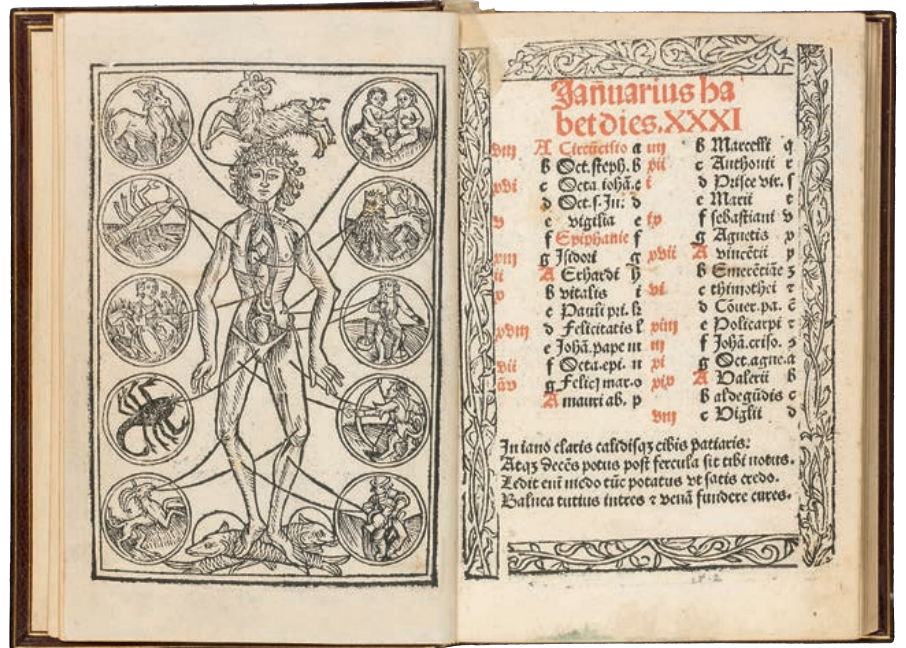 Januarius ha
bet dies. XXXI
viij A Circūcisio a
b Oct. steph. b
xvi c Octa iohā. c
d Oct. s. In: d
v e vigilia e
f Epiphanie f
xiij g Isidori g
ii A Erhardi h
x b vitalis i
c Pauli pri. k
xviij d Felicitatis l
e Johā. pape m
vii f Octa. epi. n
g Felicꝭ mar. o
A mauri ab. p
iiij b Marcelli q
xii c Anthonii r
i d Prisce vir. ſ
e Marii t
ix f sebastiani v
g Agnetis x
xvii A vincētii y
b Emerētiāe z
vi c thimothei ꝛ
d Cōuer. pa. c̄
xiiij e Policarpi ꝛ
iij f Johā. criso. s
xi g Oct. agne. a
xix A Valerii b
b aldegūdis c
viij c Vigilii d
In iano claris calidisqȝ cibis patiaris:
Atqȝ decēs potus post fercula sit tibi notus.
Ledit eni medo tūc potatus vt satis credo.
Balnea tutius intres ꝛ venā fundere cures.